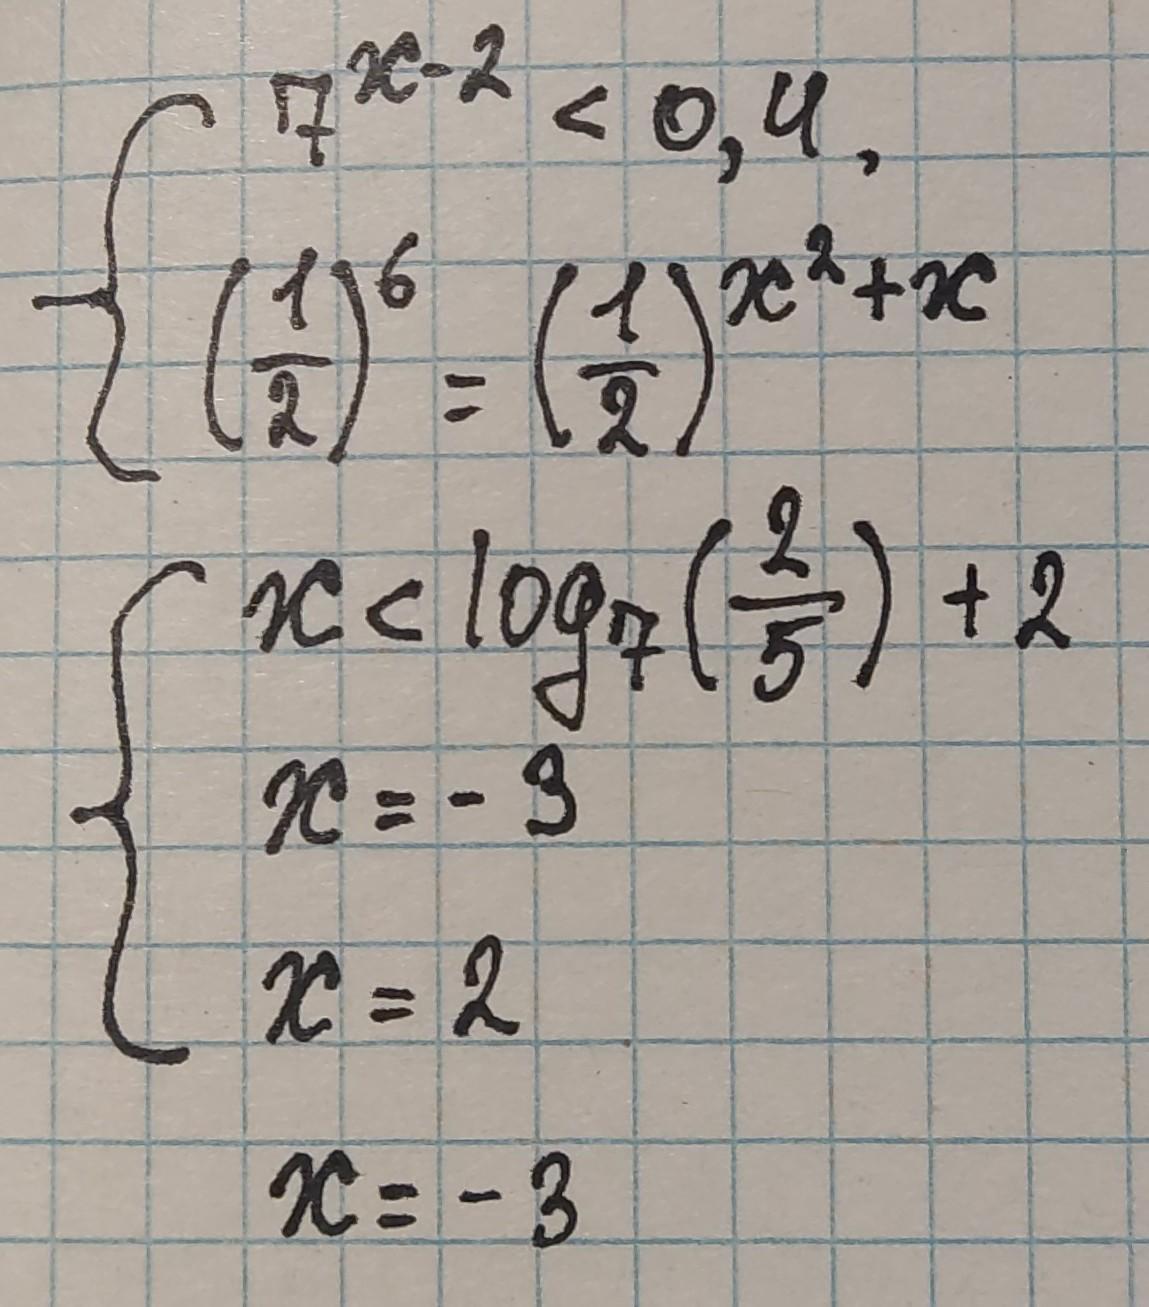 7^{x-2} < 0,4,
(1/2)^6 = (1/2)^{x^2+x}
x < log_7 (2/5) + 2
x = -3
x = 2
x = -3